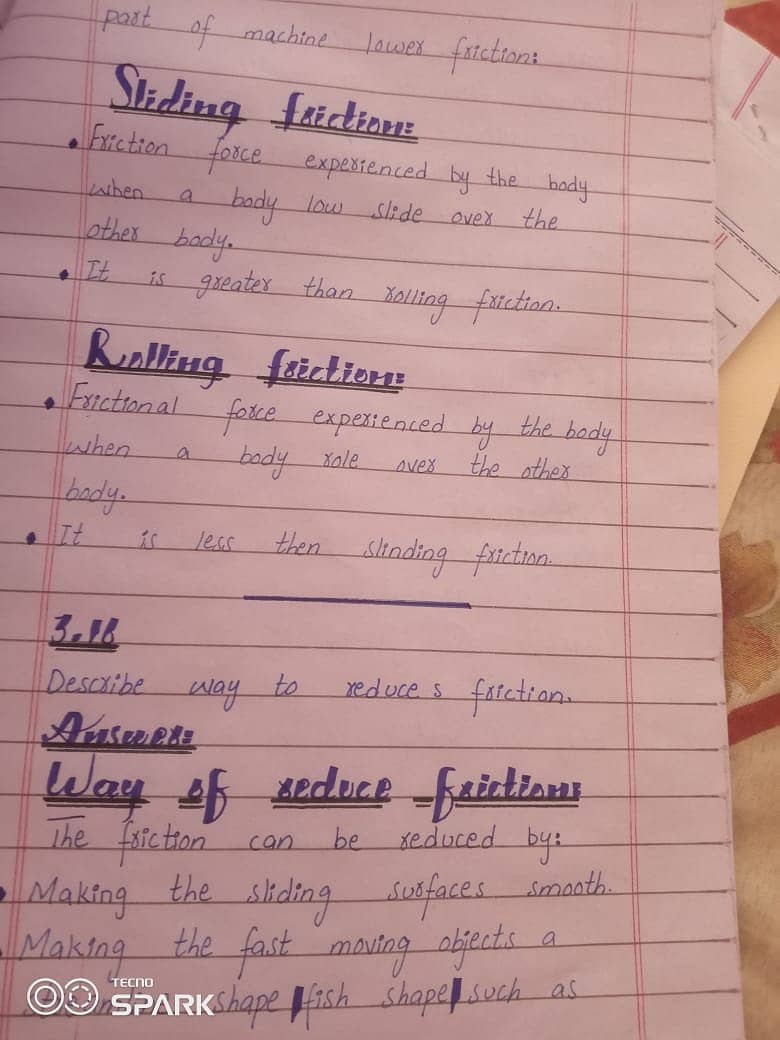 part of machine lower friction:
Sliding friction:
• Friction force experienced by the body
when a body low slide over the
other body.
• It is greater than rolling friction.
Rolling friction:
• Frictional force experienced by the body
when a body role over the other
body.
• It is less then slinding friction.
3.18
Describe way to reduce s friction.
Answer:
Way of reduce friction:
The friction can be reduced by:
• Making the sliding surfaces smooth.
• Making the fast moving objects a
shape (fish shape) such as
TECNO
SPARK